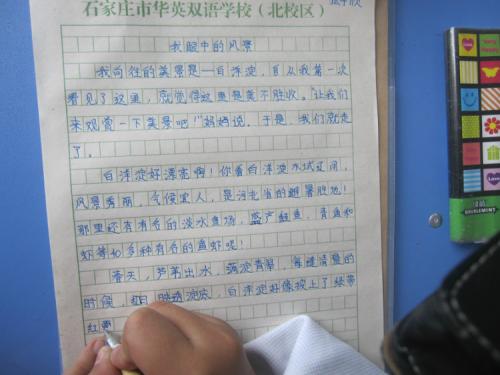 石家庄市华英双语学校(北校区)
我眼中的风景
我向往的美景是一白洋淀,自从我第一次
看见了这里,就觉得这里是美不胜收。"让我们
来观赏一下美景吧!"妈妈说。于是,我们就走
了。
白洋淀好漂亮啊!你看白洋淀水域辽阔,
风景秀丽,气候宜人,是河北省的避暑胜地!
那里还有有名的淡水鱼场,盛产鲤鱼,青鱼和
虾等如多种有名的鱼虾呢!
春天,芦苇出水,满淀青翠,每逢清晨的
时候,红日映透淀底,白洋淀好像披上了绿带
红